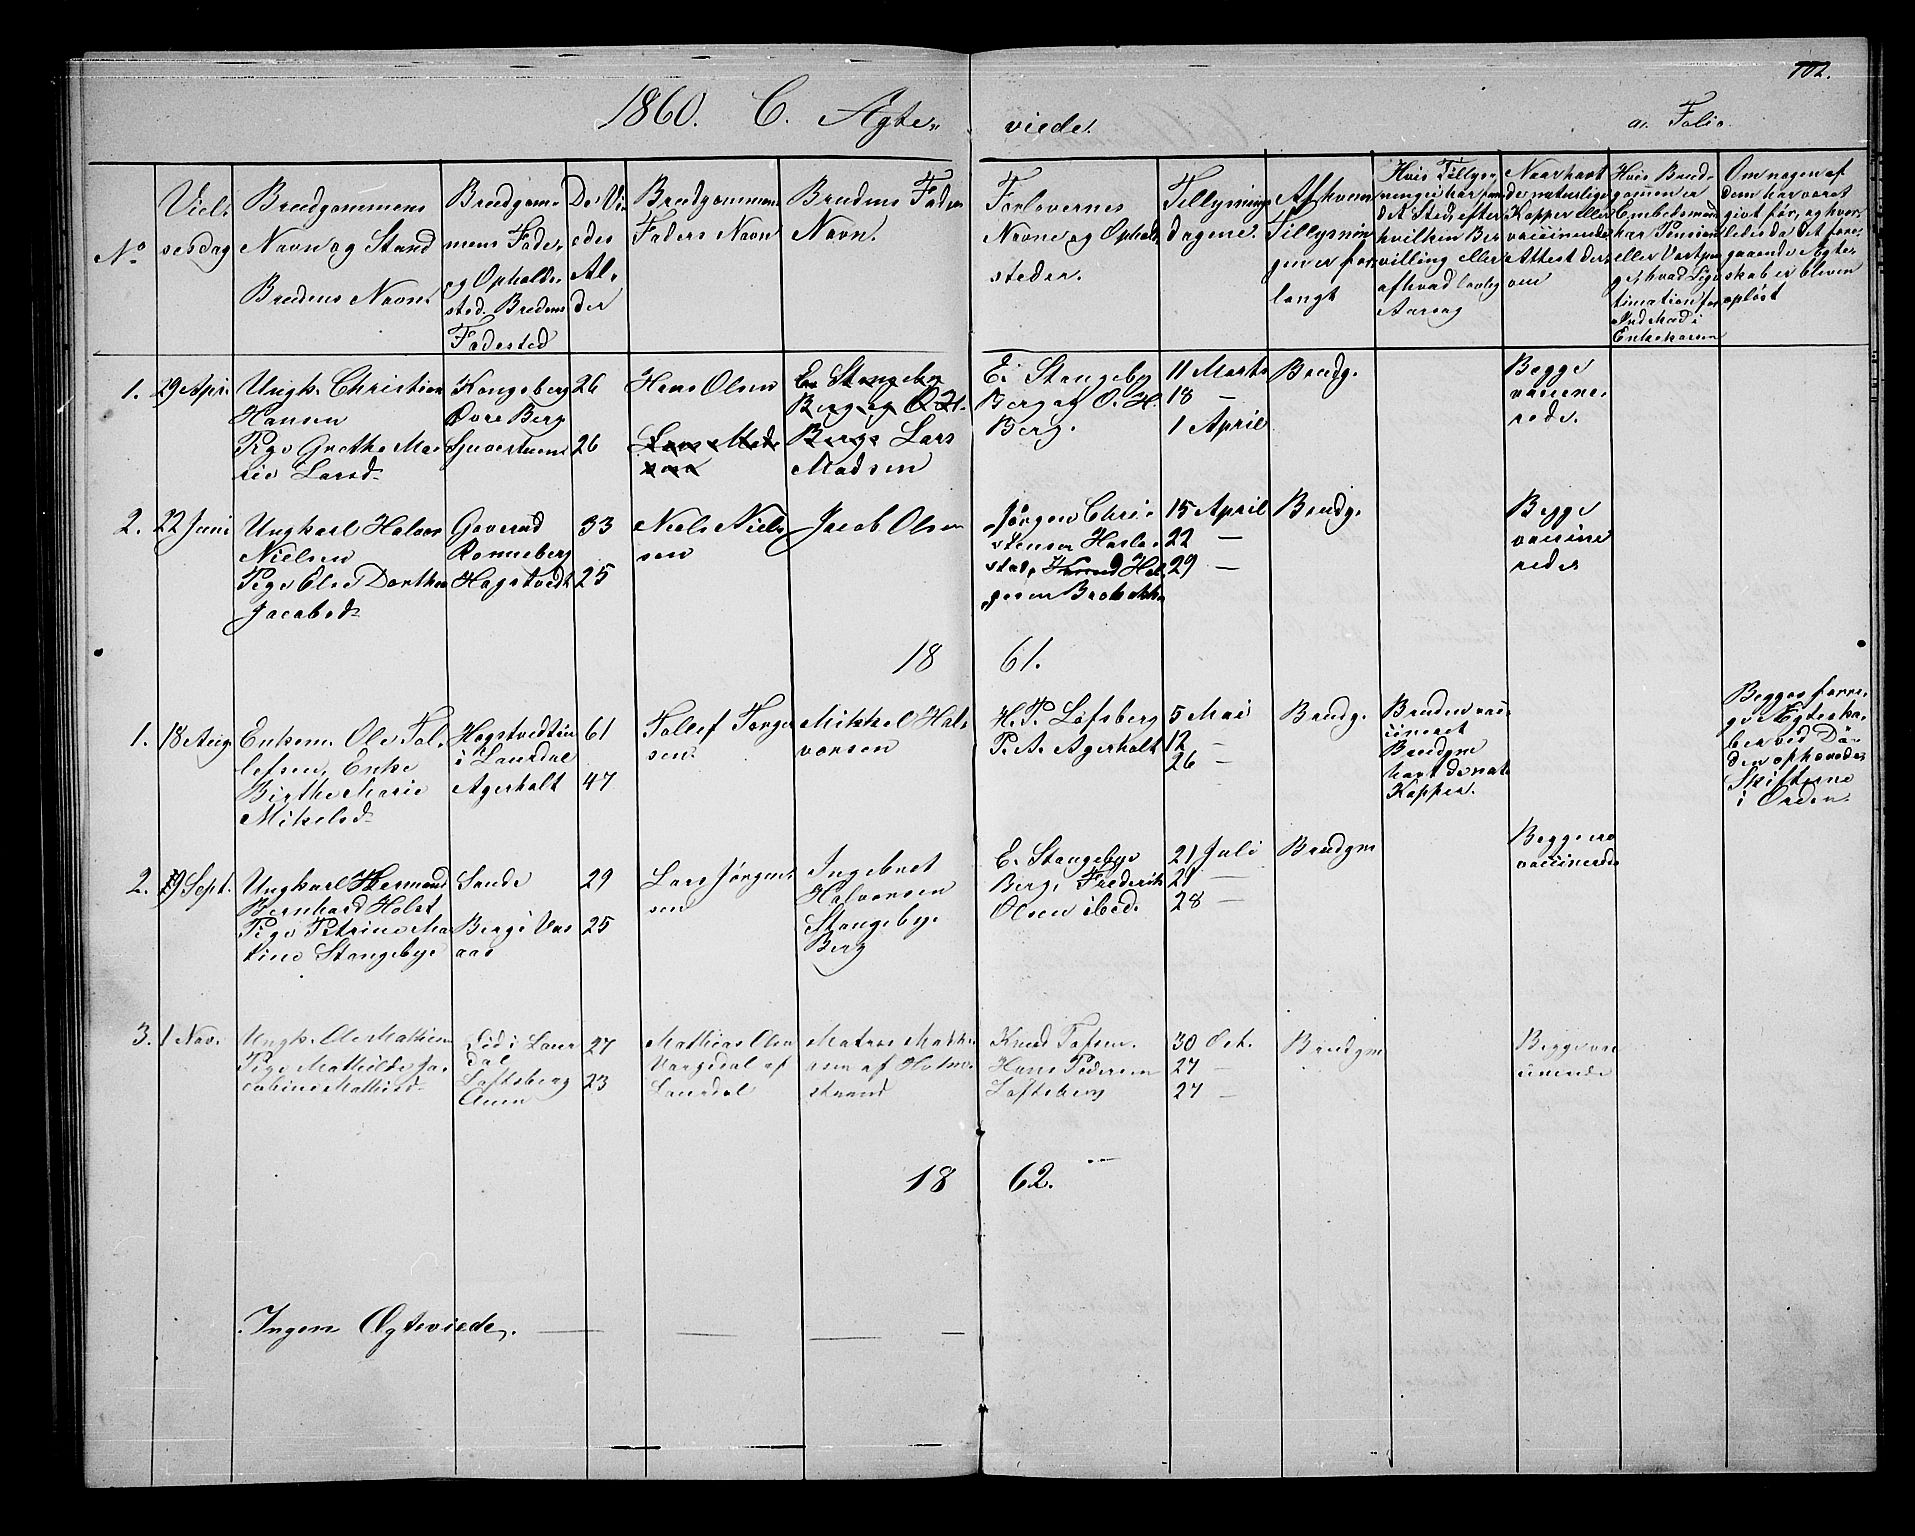 102.
1860. C. Ægte-
viede.
a. Folio
No
Viel-
sesdag
Brudgommens
Navn og Stand
Brudens Navn.
Brudgom-
mens Føde-
og Opholds-
sted. Brudens
Fødested
De Vi-
edes
Al-
der
Brudgommens
Faders Navn
Brudens Faders
Navn.
Forlovernes
Navne og Opholds-
steder.
Tillysnings
dagene.
Af hvem
Tillysnin-
gen er for-
langt
Hvis Tillys-
ning ei har fun-
det Sted efter
hvilken Be-
villing eller
af hvad lovlig
Aarsag
Naar havt
de naturlige
Kopper eller
vaccinerede
Attest der-
om
Hvis Brud-
gommen er
Embedsmand
har Pension
eller Vartpen-
ge, hvad Legi-
timation for
Indskud i
Enkekassen
Om nogen af
dem har været
givt før, og hvor-
ledes da det fore-
gaaende Ægte-
skab er bleven
opløst
1.
29 April
Ungk. Christian
Hansen
Pige Grethe Ma-
rie Larsd.
Kongsberg
Øvre Berg
26
26
Hans Olsen
Lars Mad-
sen
E. Stangeby
Berg og O. H.
Berge Lars
Madsen
E. Stangeby
Berg og O. H.
Berg.
11 Marts
18 —
1 April
Brudg.
Begge
vaccine-
rede.
2.
22 Juni
Ungkarl Halvor
Nielsen
Pige Else Dorthea
Jacobsd.
Gaverud
Ronneberg
Hagstvedt
33
25
Niels Niel-
sen
Jacob Olsen
Jørgen Chri-
stensen Hasle-
stad, Hel-
gesen Brobekk
15 April
22 —
29 —
Brudg.
Begge
vaccine
rede
18 61.
1.
18 Aug.
Enkem. Ole Tol-
lefsen, Enke
Birthe Marie
Mikelsd.
Hagstvedtin
i Laurdal
Agerholt
61
47
Tollef Torger
sen.
Mikkel Hal-
vorsen
H. P. Løfsberg
P. A. Agerholt
5 Mai
12 —
26 —
Brudg.
Bruden vac-
cineret
Brudgm
havt de nat.
Kopper.
Begges forri-
ge Ægteska-
ber ved Dø-
den ophævede
Skifterne
i Orden.
2.
19 Sept.
Ungkarl Herman
Bernhard Holst
Pige Petrine Ma
tine Stangebye
Sande
Berg i Vas
aas
29
25
Lars Jørgen-
sen
Ingebret
Halvorsen
Stangebye
Berg
E. Stangebye
Berg, Frederik
Olsen ibed.
21 Juli
21 —
28 —
Brudgm
Begge
vaccinerede
3.
1 Nov.
Ungk. Ole Mathisen
Pige Mathilde Ja-
cobine Mathisd.
Lid i Laur
dal
Løftsberg
27
23
Mathias Olsen
Vargdal af
Laurdal
Matros Mathi
asen af Holm-
strand
Knud Tofsen.
Hans Pedersen
Løftsberg
30 Oct.
27 —
27 —
Brudgm
Begge vac
cinerede
18 62.
Ingen Ægteviede.